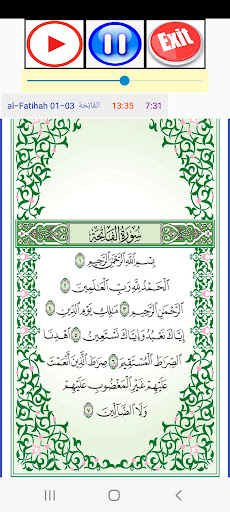 Exit
al-Fatihah 01-03 الفَاتِحَة 13:35 7:31
سُورَةُ الْفَاتِحَةِ
بِسْمِ اللَّهِ الرَّحْمَٰنِ الرَّحِيمِ ١
الْحَمْدُ لِلَّهِ رَبِّ الْعَالَمِينَ ٢
الرَّحْمَٰنِ الرَّحِيمِ ٣ مَالِكِ يَوْمِ الدِّينِ ٤
إِيَّاكَ نَعْبُدُ وَإِيَّاكَ نَسْتَعِينُ ٥ اهْدِنَا
الصِّرَاطَ الْمُسْتَقِيمَ ٦ صِرَاطَ الَّذِينَ أَنْعَمْتَ
عَلَيْهِمْ غَيْرِ الْمَغْضُوبِ عَلَيْهِمْ
وَلَا الضَّالِّينَ ٧